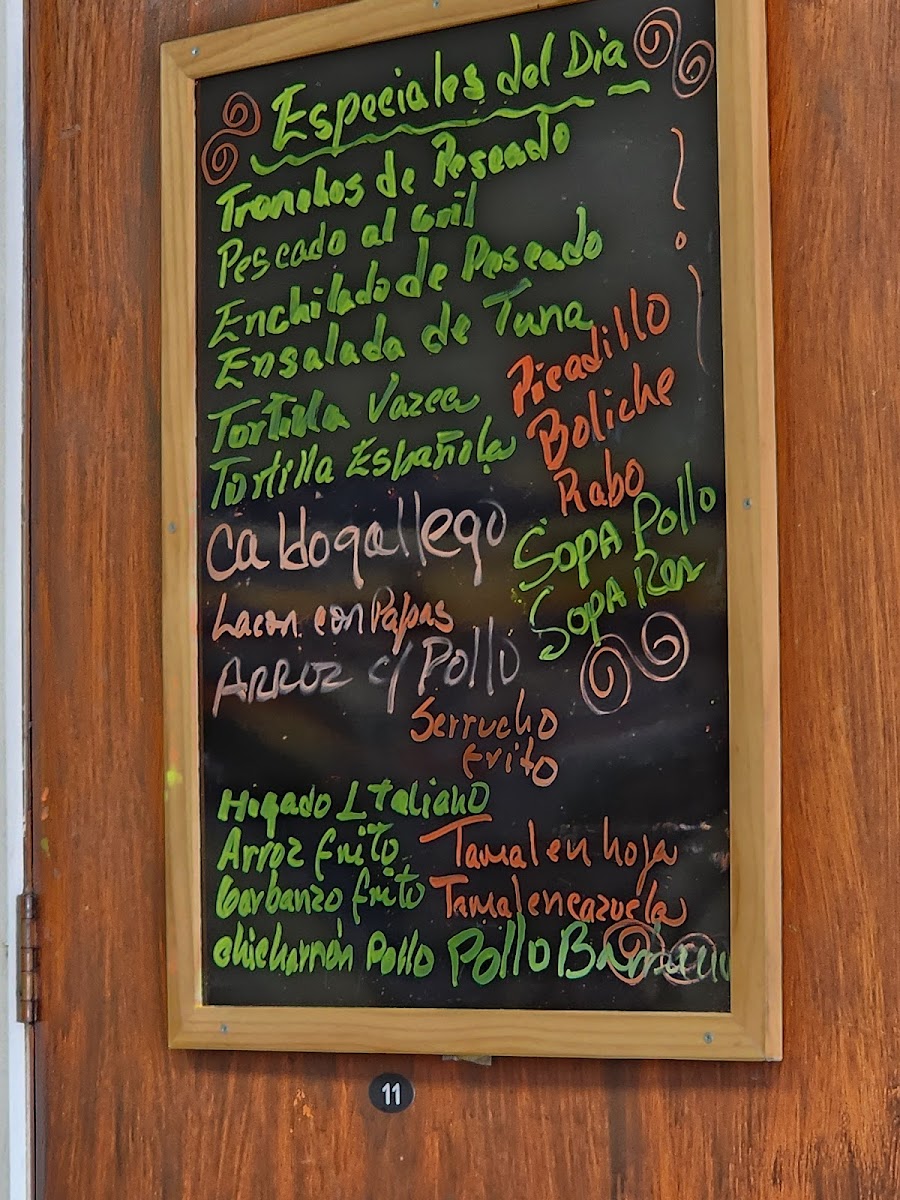 Especiales del Dia
Tronchos de Pescado
Pescado al Gril
Enchilado de Pescado
Ensalada de Tuna
Tortilla Vazca
Tortilla Española
Picadillo
Boliche
Rabo
Sopa Pollo
Sopa Res
Caldogallego
Lacon con Papas
Arroz c/ Pollo
Serrucho
Frito
Higado Italiano
Arroz frito
Garbanzo frito
chicharrón Pollo
Tamal en hoja
Tamal encazuela
Pollo
11